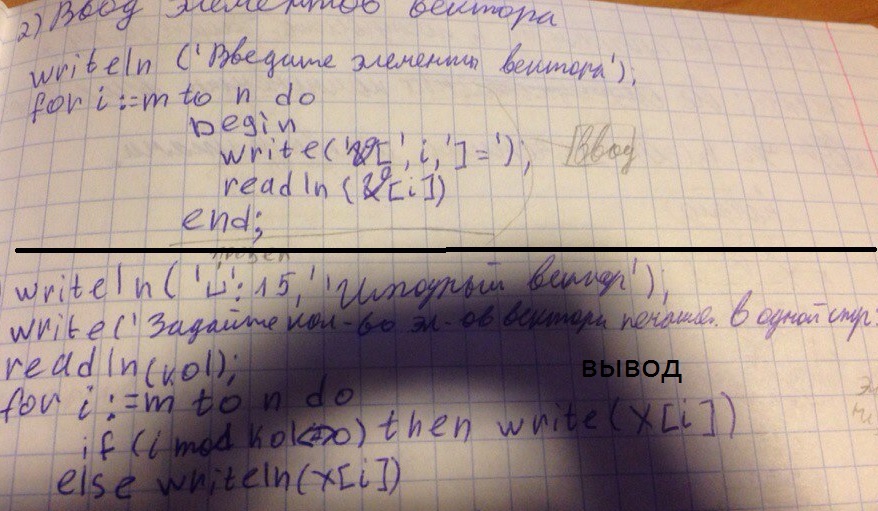 2) Ввод элементов вектора
writeln ('Введите элементы вектора');
for i:=m to n do
begin
write('X[',i,']=');
[Ввод
readln (X[i])
end;
пробел
writeln('␣':15,'Исходный вектор');
write('Задайте кол-во эл-ов вектора печатае. в одной стр:
readln(kol);
вывод
for i:=m to n do
if (i mod kol<>0) then write(X[i])
else writeln(X[i])